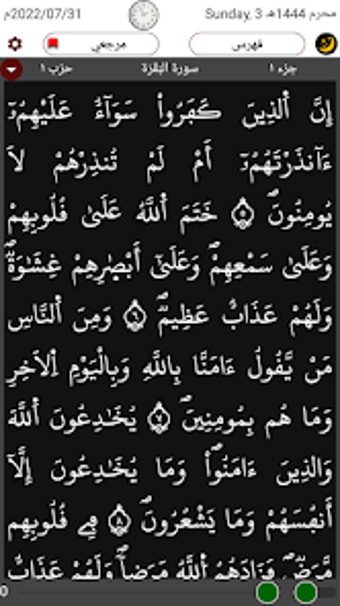 2022/07/31م
Sunday, 3 محرم 1444هـ
مرجعي
فهرس
جزء ١
سورة البقرة
حزب ١
إِنَّ ٱلَّذِينَ كَفَرُوا۟ سَوَآءٌ عَلَيْهِمُۥٓ
ءَآنذَرْتَهُمُۥٓ أَمْ لَمْ تُنذِرْهُمْ لَا
يُومِنُونَۖ ٥ خَتَمَ ٱللَّهُ عَلَىٰ قُلُوبِهِمْ
وَعَلَىٰ سَمْعِهِمْۖ وَعَلَىٰٓ أَبْصَٰرِهِمْ غِشَٰوَةٌۖ
وَلَهُمْ عَذَابٌ عَظِيمٌۖ ٦ وَمِنَ ٱلنَّاسِ
مَنْ يَّقُولُ ءَامَنَّا بِاللَّهِ وَبِالْيَوْمِ ٱلَاخِرِ
وَمَا هُم بِمُومِنِينَۖ ٧ يُخَٰدِعُونَ ٱللَّهَ
وَالذِينَ ءَامَنُوا۟ۖ وَمَا يُخَٰدِعُونَ إِلَّآ
أَنفُسَهُمْ وَمَا يَشْعُرُونَۖ ٨ فِے قُلُوبِهِم
مَّرَضٌۖ فَزَادَهُمُ ٱللَّهُ مَرَضاًۖ وَلَهُمْ عَذَابٌ